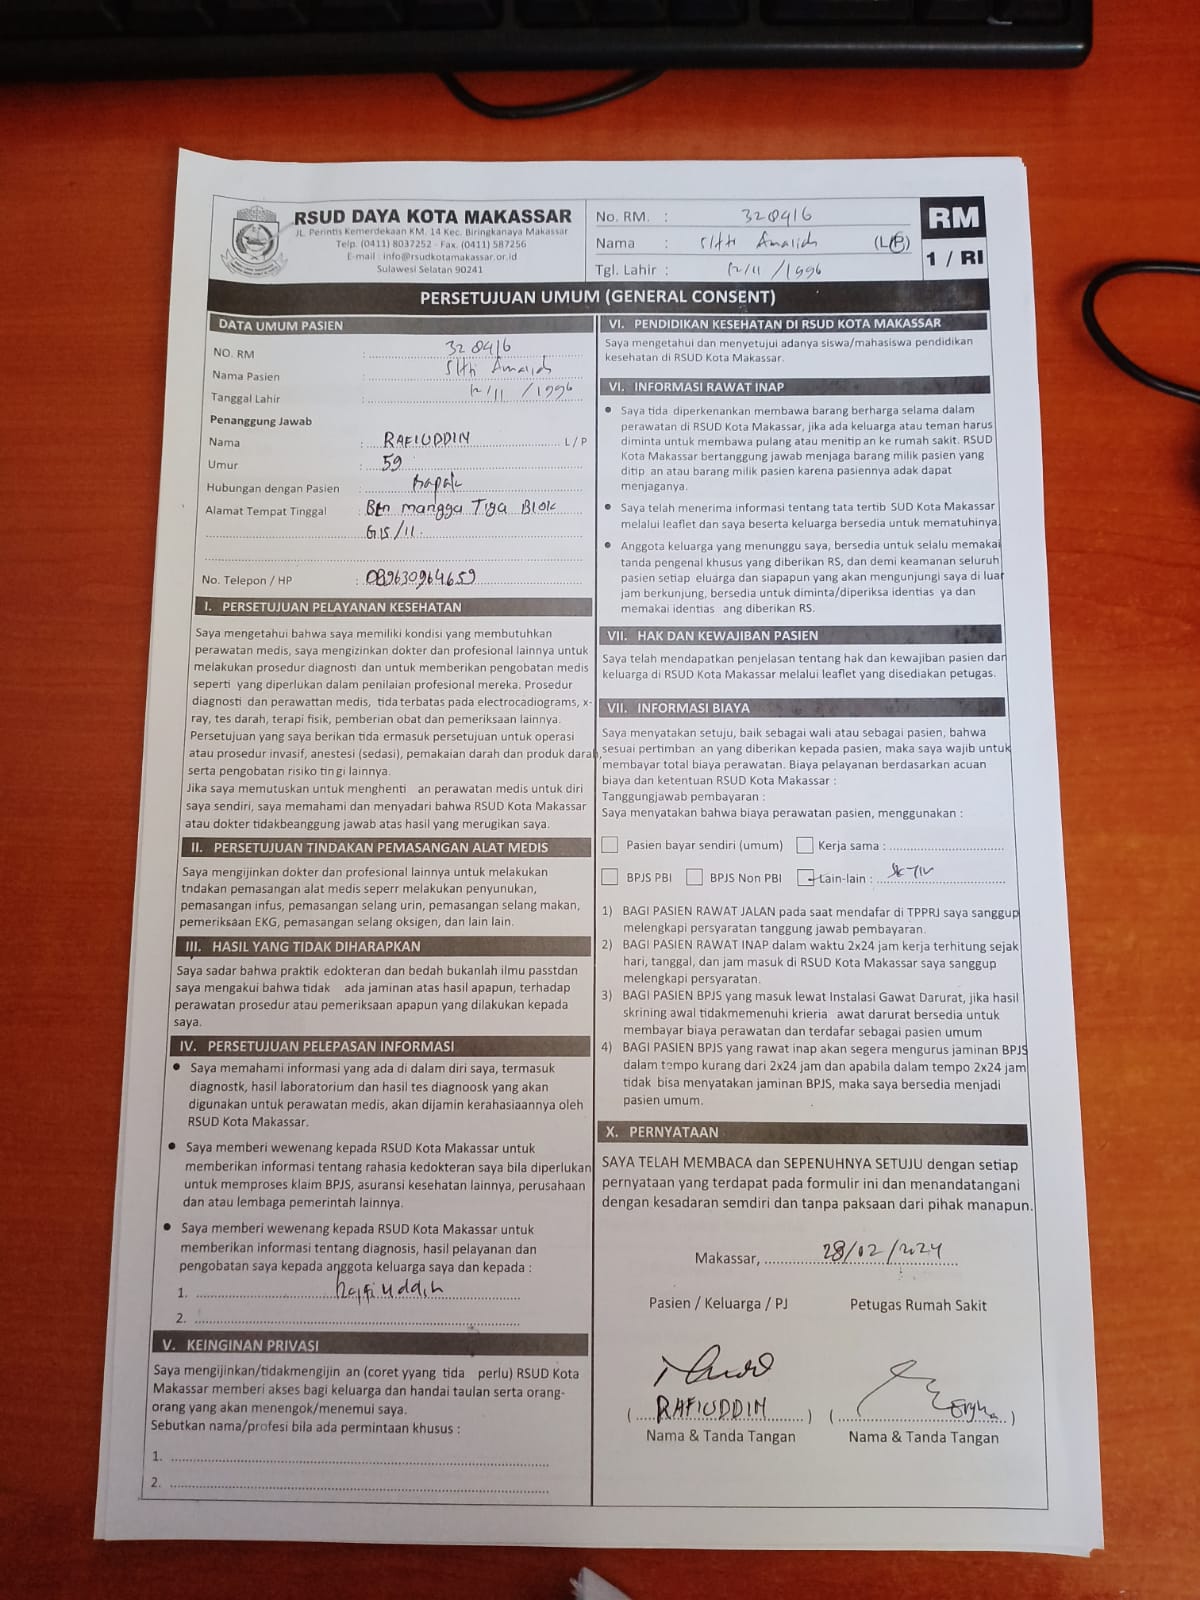 RSUD DAYA KOTA MAKASSAR
JL. Perintis Kemerdekaan KM. 14 Kec. Biringkanaya Makassar
Telp. (0411) 8037252 - Fax. (0411) 587256
E-mail : info@rsudkotamakassar.or.id
Sulawesi Selatan 90241
No. RM. : 320916
Nama : Sitti Amalia (L/P)
Tgl. Lahir : 12/11/1996
RM
1 / RI
PERSETUJUAN UMUM (GENERAL CONSENT)
DATA UMUM PASIEN
NO. RM : 320916
Nama Pasien : Sitti Amalia
Tanggal Lahir : 12/11/1996
Penanggung Jawab
Nama : RAFIUDDIN L/P
Umur : 59
Hubungan dengan Pasien : Bapak
Alamat Tempat Tinggal : Btn mangga Tiga Blok
G15/11.
No. Telepon / HP : 089630964659
I. PERSETUJUAN PELAYANAN KESEHATAN
Saya mengetahui bahwa saya memiliki kondisi yang membutuhkan
perawatan medis, saya mengizinkan dokter dan profesional lainnya untuk
melakukan prosedur diagnosti dan untuk memberikan pengobatan medis
seperti yang diperlukan dalam penilaian profesional mereka. Prosedur
diagnosti dan perawattan medis, tida terbatas pada electrocadiograms, x-
ray, tes darah, terapi fisik, pemberian obat dan pemeriksaan lainnya.
Persetujuan yang saya berikan tida ermasuk persetujuan untuk operasi
atau prosedur invasif, anestesi (sedasi), pemakaian darah dan produk darah,
serta pengobatan risiko tingi lainnya.
Jika saya memutuskan untuk menghenti an perawatan medis untuk diri
saya sendiri, saya memahami dan menyadari bahwa RSUD Kota Makassar
atau dokter tidakbeanggung jawab atas hasil yang merugikan saya.
II. PERSETUJUAN TINDAKAN PEMASANGAN ALAT MEDIS
Saya mengijinkan dokter dan profesional lainnya untuk melakukan
tndakan pemasangan alat medis seperr melakukan penyunukan,
pemasangan infus, pemasangan selang urin, pemasangan selang makan,
pemeriksaan EKG, pemasangan selang oksigen, dan lain lain.
III. HASIL YANG TIDAK DIHARAPKAN
Saya sadar bahwa praktik edokteran dan bedah bukanlah ilmu passtdan
saya mengakui bahwa tidak ada jaminan atas hasil apapun, terhadap
perawatan prosedur atau pemeriksaan apapun yang dilakukan kepada
saya.
IV. PERSETUJUAN PELEPASAN INFORMASI
• Saya memahami informasi yang ada di dalam diri saya, termasuk
diagnostk, hasil laboratorium dan hasil tes diagnoosk yang akan
digunakan untuk perawatan medis, akan dijamin kerahasiaannya oleh
RSUD Kota Makassar.
• Saya memberi wewenang kepada RSUD Kota Makassar untuk
memberikan informasi tentang rahasia kedokteran saya bila diperlukan
untuk memproses klaim BPJS, asuransi kesehatan lainnya, perusahaan
dan atau lembaga pemerintah lainnya.
• Saya memberi wewenang kepada RSUD Kota Makassar untuk
memberikan informasi tentang diagnosis, hasil pelayanan dan
pengobatan saya kepada anggota keluarga saya dan kepada :
1. Rafiuddin
2.
V. KEINGINAN PRIVASI
Saya mengijinkan/tidakmengijin an (coret yyang tida perlu) RSUD Kota
Makassar memberi akses bagi keluarga dan handai taulan serta orang-
orang yang akan menengok/menemui saya.
Sebutkan nama/profesi bila ada permintaan khusus :
1.
2.
VI. PENDIDIKAN KESEHATAN DI RSUD KOTA MAKASSAR
Saya mengetahui dan menyetujui adanya siswa/mahasiswa pendidikan
kesehatan di RSUD Kota Makassar.
VI. INFORMASI RAWAT INAP
• Saya tida diperkenankan membawa barang berharga selama dalam
perawatan di RSUD Kota Makassar, jika ada keluarga atau teman harus
diminta untuk membawa pulang atau menitip an ke rumah sakit. RSUD
Kota Makassar bertanggung jawab menjaga barang milik pasien yang
ditip an atau barang milik pasien karena pasiennya adak dapat
menjaganya.
• Saya telah menerima informasi tentang tata tertib SUD Kota Makassar
melalui leaflet dan saya beserta keluarga bersedia untuk mematuhinya
• Anggota keluarga yang menunggu saya, bersedia untuk selalu memakai
tanda pengenal khusus yang diberikan RS, dan demi keamanan seluruh
pasien setiap eluarga dan siapapun yang akan mengunjungi saya di luar
jam berkunjung, bersedia untuk diminta/diperiksa identias ya dan
memakai identias ang diberikan RS.
VII. HAK DAN KEWAJIBAN PASIEN
Saya telah mendapatkan penjelasan tentang hak dan kewajiban pasien dan
keluarga di RSUD Kota Makassar melalui leaflet yang disediakan petugas.
VII. INFORMASI BIAYA
Saya menyatakan setuju, baik sebagai wali atau sebagai pasien, bahwa
sesuai pertimban an yang diberikan kepada pasien, maka saya wajib untuk
membayar total biaya perawatan. Biaya pelayanan berdasarkan acuan
biaya dan ketentuan RSUD Kota Makassar :
Tanggungjawab pembayaran :
Saya menyatakan bahwa biaya perawatan pasien, menggunakan :
Pasien bayar sendiri (umum) Kerja sama :
BPJS PBI BPJS Non PBI Lain-lain :
1) BAGI PASIEN RAWAT JALAN pada saat mendafar di TPPRJ saya sanggup
melengkapi persyaratan tanggung jawab pembayaran.
2) BAGI PASIEN RAWAT INAP dalam waktu 2x24 jam kerja terhitung sejak
hari, tanggal, dan jam masuk di RSUD Kota Makassar saya sanggup
melengkapi persyaratan.
3) BAGI PASIEN BPJS yang masuk lewat Instalasi Gawat Darurat, jika hasil
skrining awal tidakmemenuhi krieria awat darurat bersedia untuk
membayar biaya perawatan dan terdafar sebagai pasien umum
4) BAGI PASIEN BPJS yang rawat inap akan segera mengurus jaminan BPJS
dalam tempo kurang dari 2x24 jam dan apabila dalam tempo 2x24 jam
tidak bisa menyatakan jaminan BPJS, maka saya bersedia menjadi
pasien umum.
X. PERNYATAAN
SAYA TELAH MEMBACA dan SEPENUHNYA SETUJU dengan setiap
pernyataan yang terdapat pada formulir ini dan menandatangani
dengan kesadaran semdiri dan tanpa paksaan dari pihak manapun.
Makassar, 28/02/2024
Pasien / Keluarga / PJ Petugas Rumah Sakit
( RAFIUDDIN ) ( )
Nama & Tanda Tangan Nama & Tanda Tangan